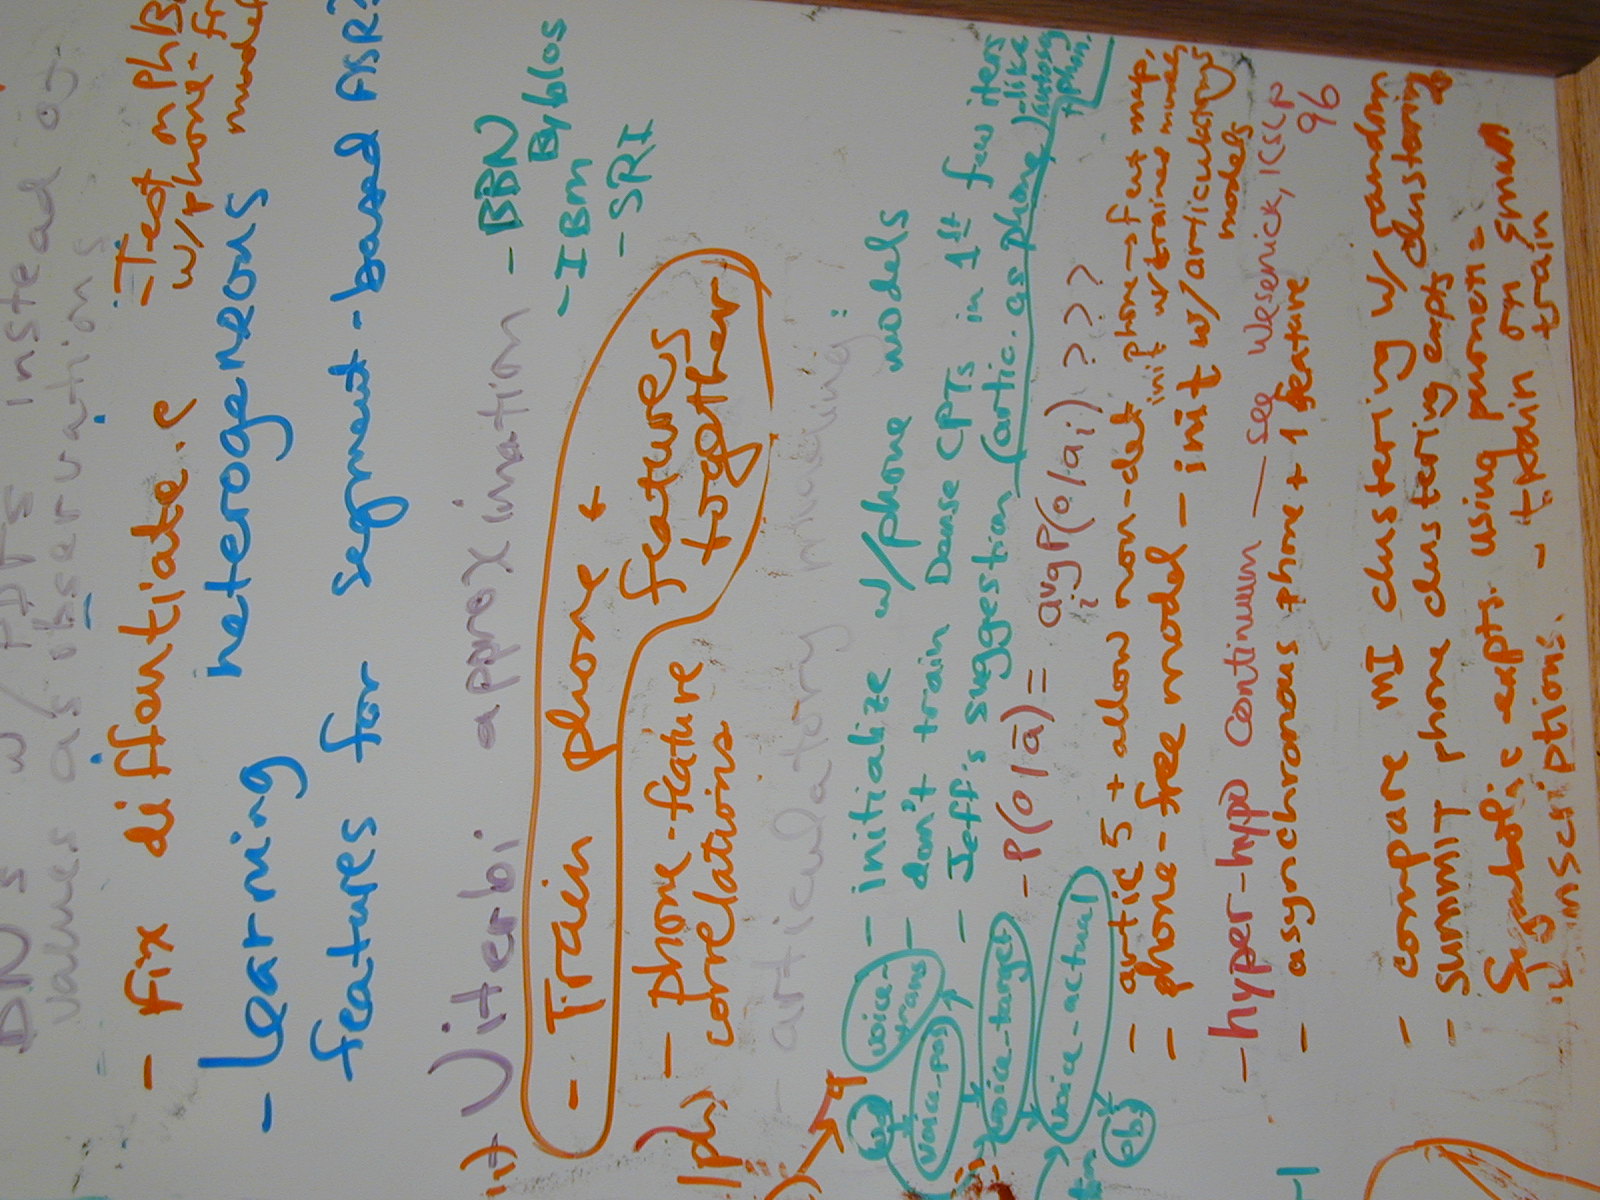 values as observations
- fix differentiate.c
- Test
w/phone-
- Learning heterogeneous
features for segment-based ASR?
Viterbi approximation
- BBN
Byblos
- IBM
- SRI
- Train phone +
features
together
- phone-feature
correlations
articulatory
- initialize w/phone models
- don't train Dense CPTs in 1st few iters
- Jeff's suggestion (artic. as phone)
- P(o|ā) = avg P(o|ai) ???
i
- artic 5 + allow non-det phone→feat map,
init w/trained models
- phone-free model - init w/articulatory
models
- hyper-hypo continuum — see Wesenick, ICSLP
96
- asynchronous phone + 1 feature
- compare MI clustering w/random
clustering
- SUMMIT phone clustering expts
Symbolic expts. using phonetic
transcriptions. - train on small
train
voice-
trans
voice-pos
voice-target
voice-actual
obs